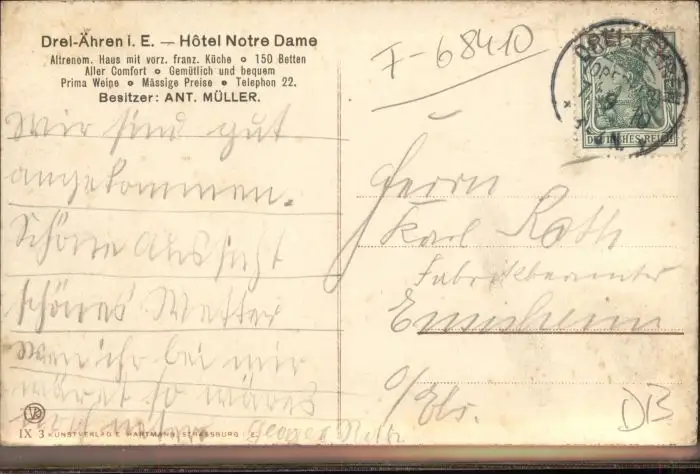 Drei-Ähren i. E. — Hôtel Notre Dame
Altrenom. Haus mit vorz. franz. Küche • 150 Betten
Aller Comfort • Gemütlich und bequem
Prima Weine • Mässige Preise • Telephon 22.
Besitzer: ANT. MÜLLER.
Wir sind gut
angekommen.
Schöne Aussicht
schönes Wetter
Wen ihr bei mir
wäret so wäres
Georges Roth
IX 3 KUNSTVERLAG E. HARTMANN, STRASSBURG
F-68410
DREI-AEHREN
DEUTSCHES REICH
Herrn
Karl Roth
Fabrikbeamter
Ensisheim
O/Els.
DB